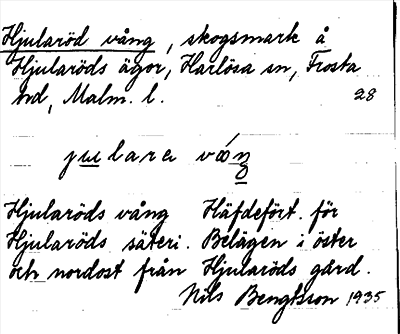 Hjularöd vång, skogsmark å
Hjularöds ägor, Harlösa sn, Frosta
hd, Malm. l. 28
jularа
Hjularöds vång Häfdefört. för
Hjularöds säteri. Belägen i öster
och nordost från Hjularöds gård.
Nils Bengtsson 1935